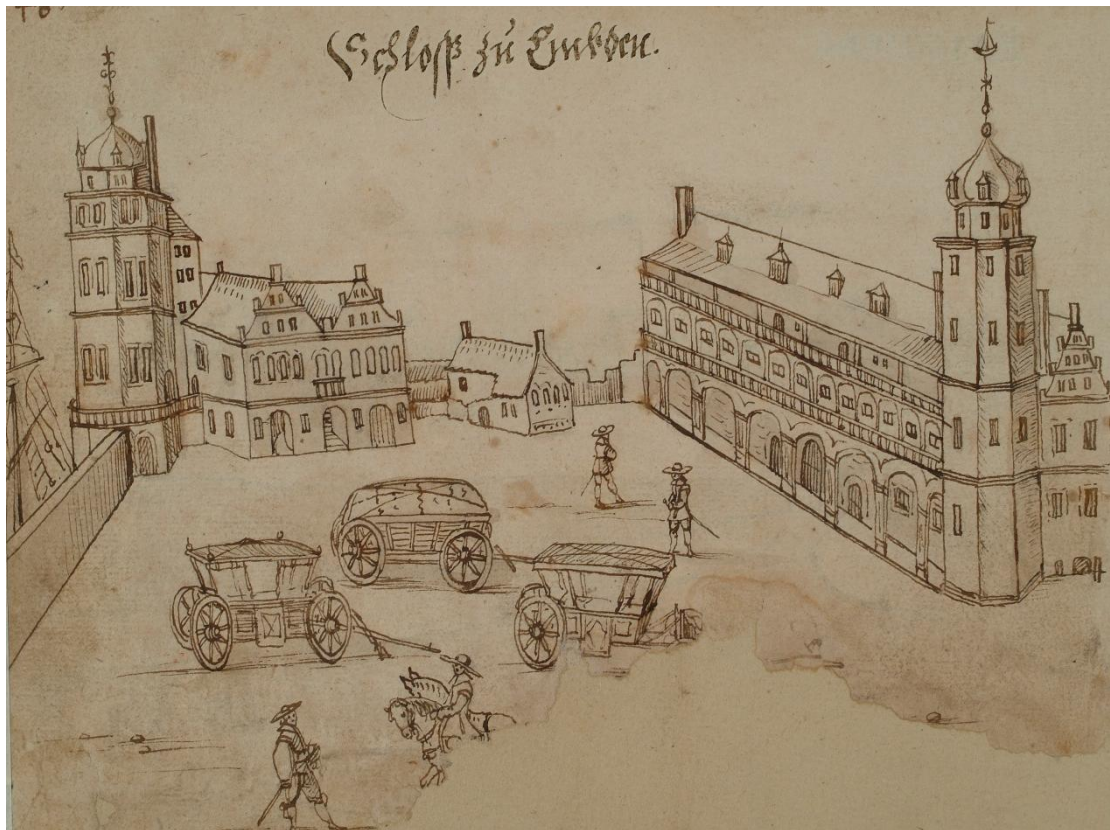 Schloſß zu Embden.